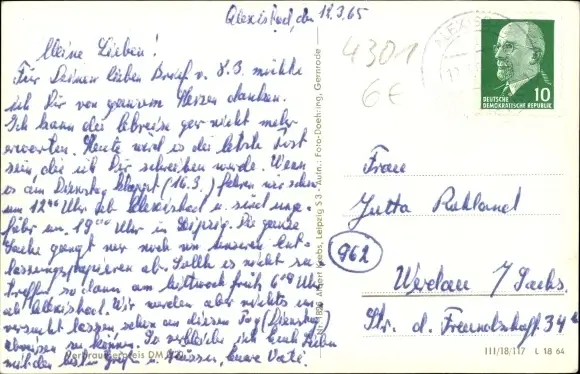 Alexisbad, den 12.3.65
Meine Lieben!
Für Deinen lieben Brief v. 8.3. möchte
ich Dir von ganzem Herzen danken.
Ich kann die Abreise gar nicht mehr
erwarten. Heute wird es die letzte Post
sein, die ich Dir schreiben würde. Wenn
es am Dienstag klappt (16.3.) fahren wir schon
um 12 Uhr ab Alexisbad u. sind unge-
fähr um 19 00 Uhr in Leipzig. Die ganze
Sache hängt nur noch von unseren Ent-
lassungspapieren ab. Sollte es nicht zu-
treffen so dann am Mittwoch früh 6 Uhr
ab Alexisbad. Wir werden aber nichts un-
versucht lassen schon an diesem Tag (Dienstag)
abreisen zu können. So verbleibe ich Euch Lieben
mit den besten Grüßen u. Küssen, Euer Vati.
Verbraucherpreis DM
Albert Krebs, Leipzig S 3 - Aufn.: Foto-Daehring, Gernrode
4301
6€
DEUTSCHE
DEMOKRATISCHE REPUBLIK
10
Frau
Jutta Ruhland
962
Werdau / Sachs.
Str. d. Freundschaft 34
III/18/117 L 18 64